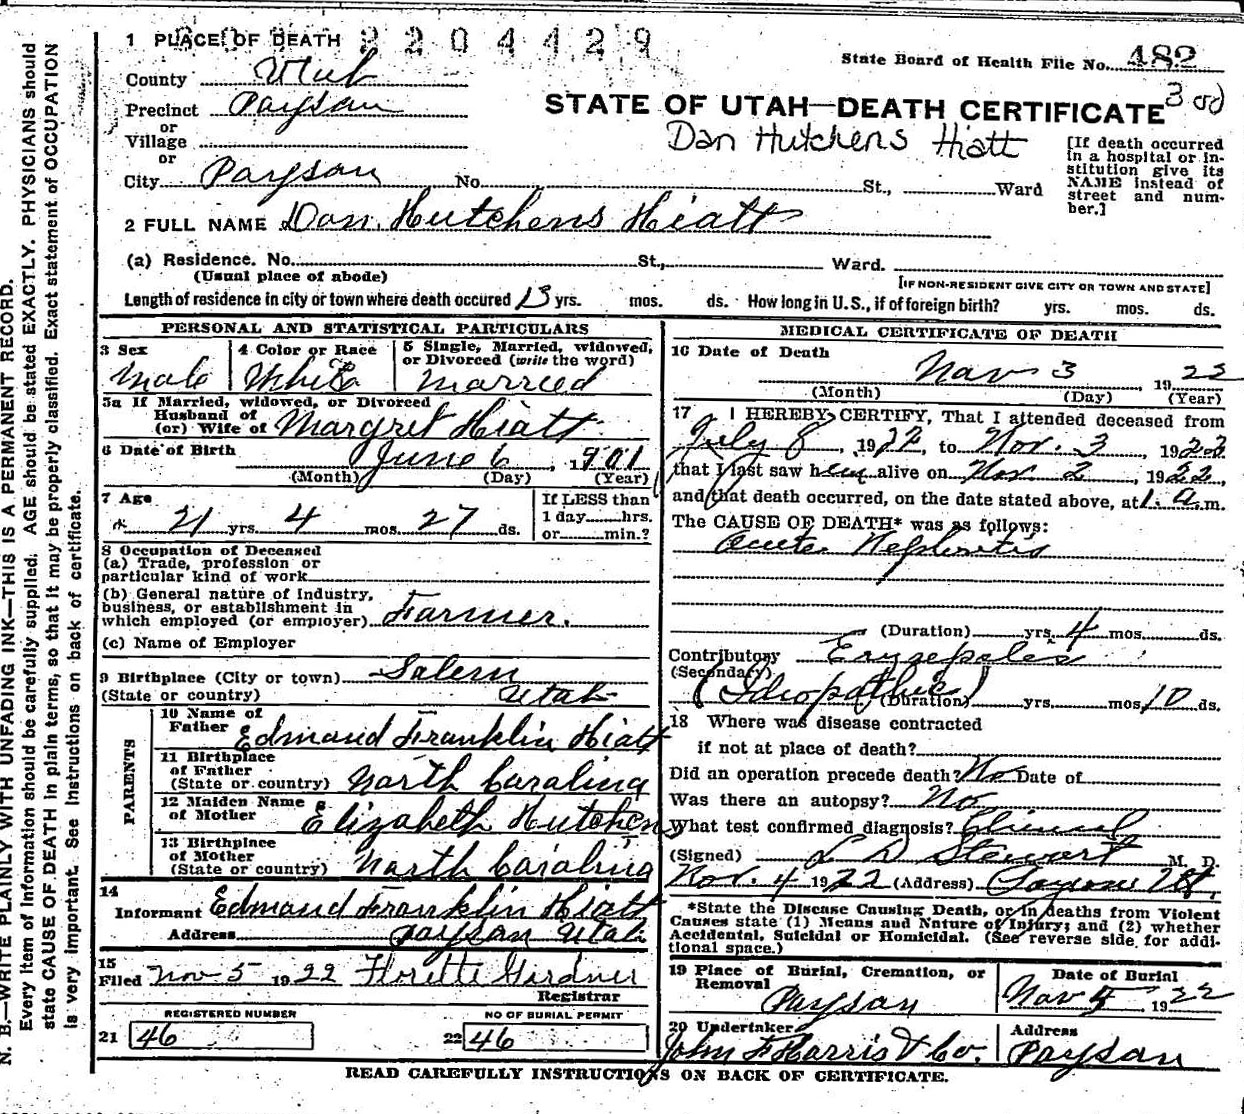 N. B.—WRITE PLAINLY WITH UNFADING INK—THIS IS A PERMANENT RECORD.
Every item of information should be carefully supplied. AGE should be stated EXACTLY. PHYSICIANS should
state CAUSE OF DEATH in plain terms, so that it may be properly classified. Exact statement of OCCUPATION
is very important. See instructions on back of certificate.
1 PLACE OF DEATH 2204429
State Board of Health File No. 482
County Utah
Precinct Payson
STATE OF UTAH—DEATH CERTIFICATE
or
Village
or
Dan Hutchens Hiatt
[If death occurred
in a hospital or in-
stitution give its
NAME instead of
street and num-
ber.]
City Payson No. St., Ward
2 FULL NAME Dan Hutchens Hiatt
(a) Residence. No. St., Ward.
(Usual place of abode) [IF NON-RESIDENT GIVE CITY OR TOWN AND STATE]
Length of residence in city or town where death occured 13 yrs. mos. ds. How long in U.S., if of foreign birth? yrs. mos. ds.
PERSONAL AND STATISTICAL PARTICULARS
3 Sex
Male
4 Color or Race
White
5 Single, Married, widowed,
or Divorced (write the word)
Married
5a If Married, widowed, or Divorced
Husband of
(or) Wife of Margret Hiatt
6 Date of Birth
June 6, 1901
(Month) (Day) (Year)
7 Age
21 yrs. 4 mos. 27 ds.
If LESS than
1 day hrs.
or min.?
8 Occupation of Deceased
(a) Trade, profession or
particular kind of work
(b) General nature of Industry,
business, or establishment in
which employed (or employer) Farmer.
(c) Name of Employer
9 Birthplace (City or town) Salem
(State or country) Utah
PARENTS
10 Name of
Father Edmand Franklin Hiatt
11 Birthplace
of Father
(State or country) North Carolina
12 Maiden Name
of Mother Elizabeth Hutchens
13 Birthplace
of Mother
(State or country) North Carolina
14
Informant Edmand Franklin Hiatt
Address Payson Utah
15
Filed Nov 5 1922 Florette Girdner
Registrar
REGISTERED NUMBER
21 46
NO OF BURIAL PERMIT
22 46
MEDICAL CERTIFICATE OF DEATH
16 Date of Death
Nov 3, 1922
(Month) (Day) (Year)
17 I HEREBY CERTIFY, That I attended deceased from
July 8, 1922, to Nov. 3 1922
that I last saw him alive on Nov. 2, 1922,
and that death occurred, on the date stated above, at 1. a.m.
The CAUSE OF DEATH* was as follows:
Acute Nephritis
(Duration) yrs. 4 mos. ds.
Contributory Erysepelas
(Secondary)
(Idiopathic) (Duration) yrs. mos. 10 ds.
18 Where was disease contracted
if not at place of death?
Did an operation precede death? No Date of
Was there an autopsy? No
What test confirmed diagnosis? Clinical
(Signed) L D Stewart M. D.
Nov. 4 1922 (Address) Payson Ut.
*State the Disease Causing Death, or in deaths from Violent
Causes state (1) Means and Nature of Injury; and (2) whether
Accidental, Suicidal or Homicidal. (See reverse side for addi-
tional space.)
19 Place of Burial, Cremation, or
Removal
Payson
Date of Burial
Nov 5 1922
20 Undertaker
John F Harris & Co.
Address
Payson
READ CAREFULLY INSTRUCTIONS ON BACK OF CERTIFICATE.